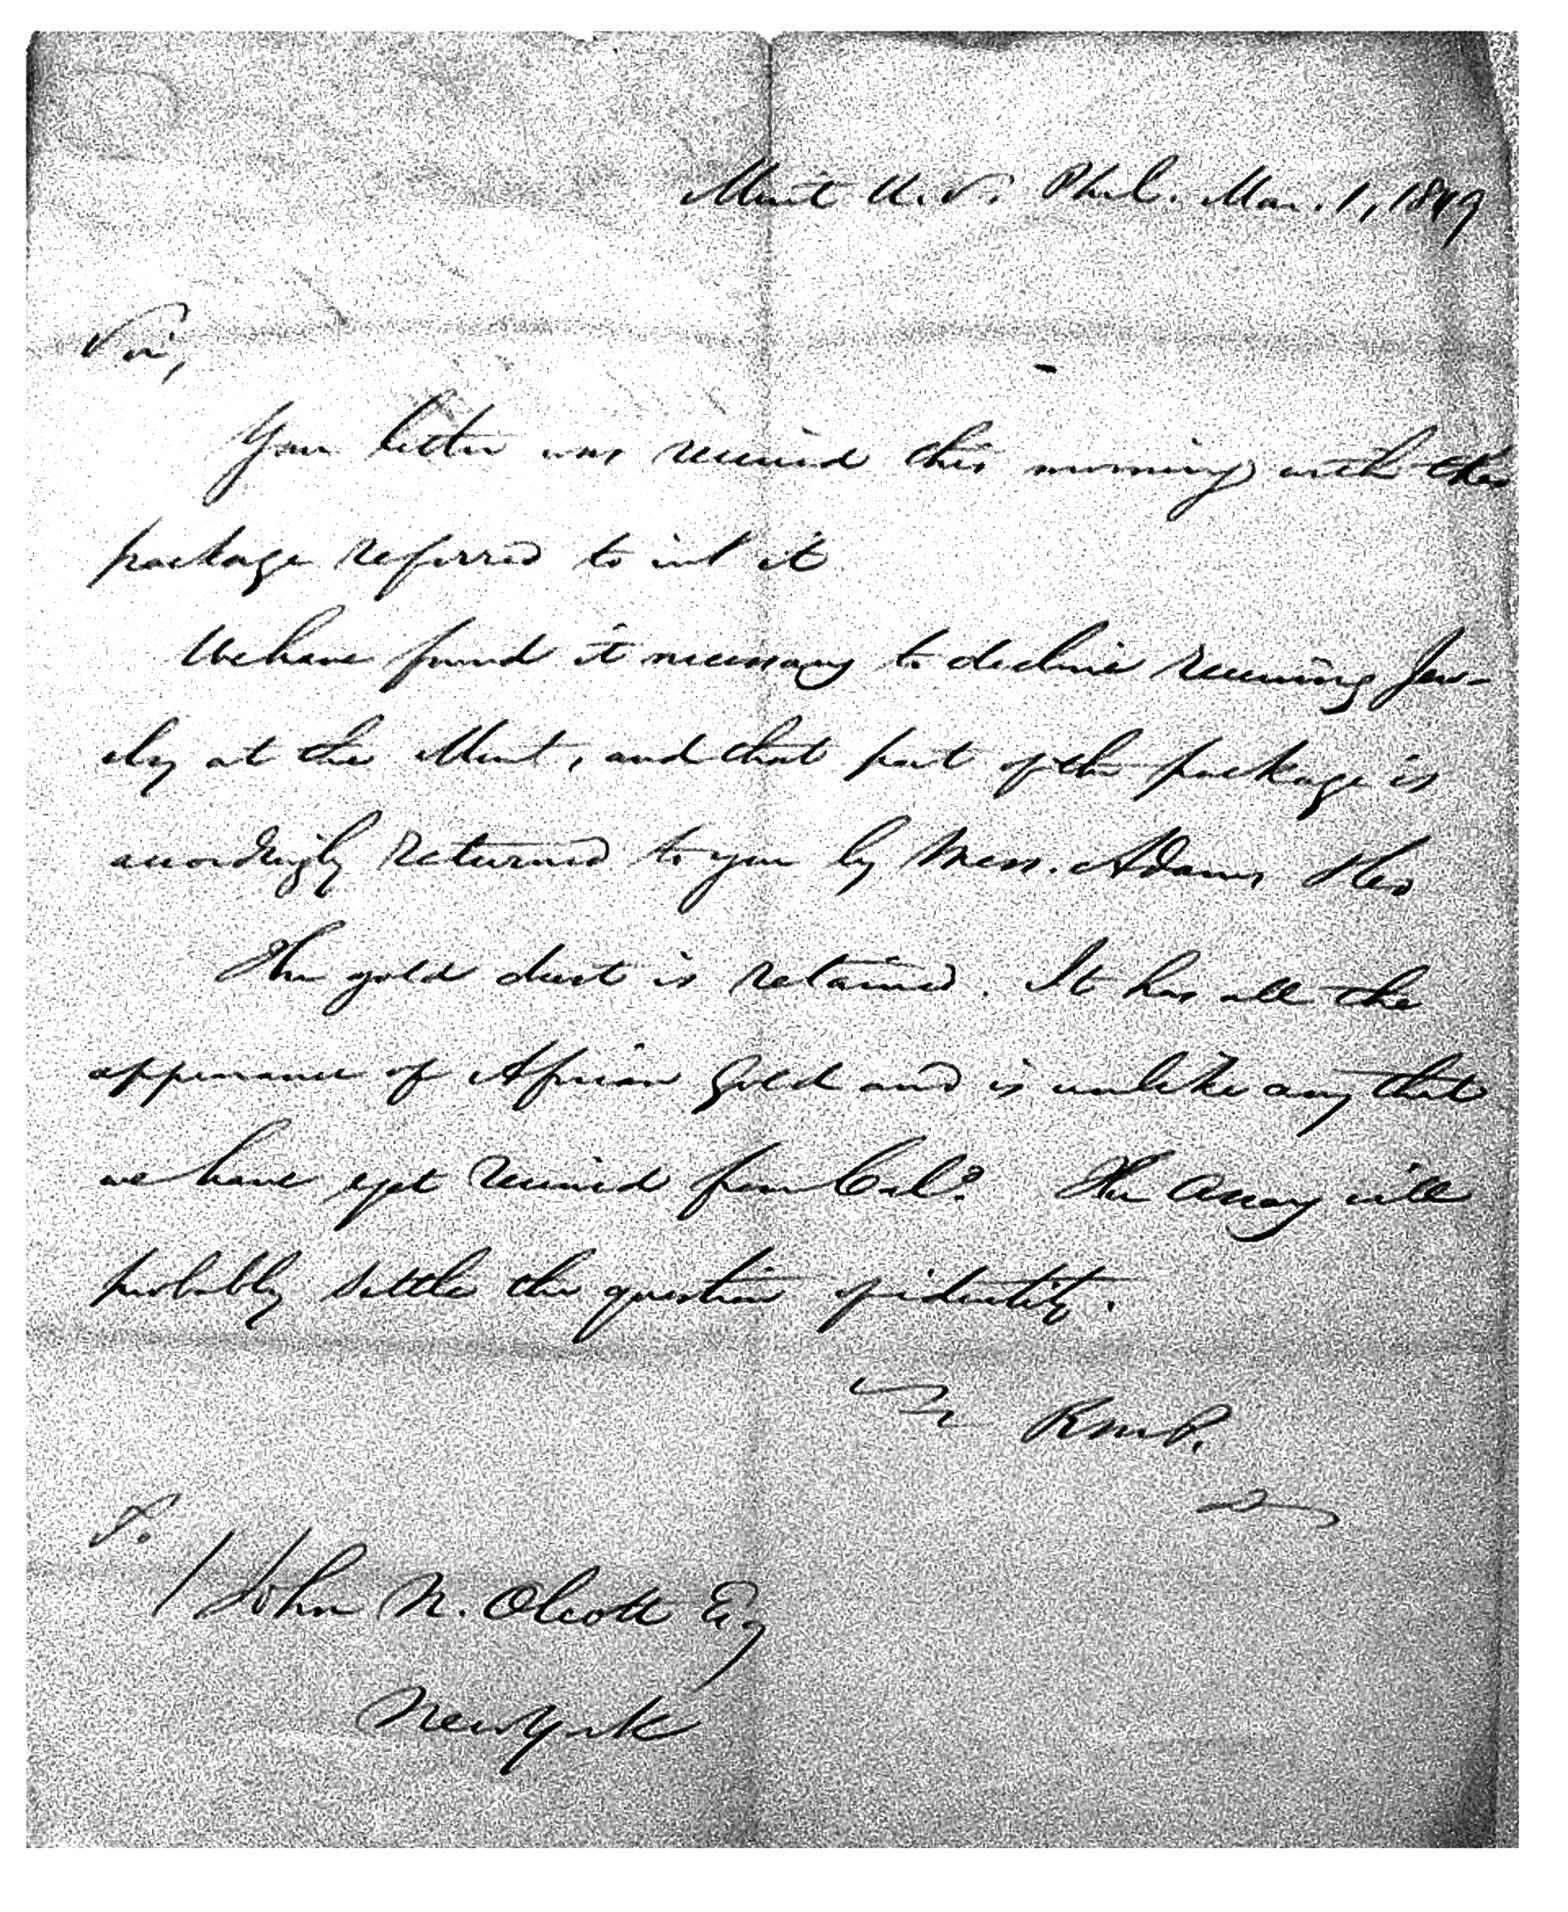 Mint U.S. Phil. Mar. 1, 1849
Sir,
Your letter was received this morning with the
package referred to in it
We have found it necessary to decline receiving Jew-
elry at the Mint, and that part of the package is
accordingly returned to you by Mess. Adams &Co
The gold dust is retained. It has all the
appearance of African Gold and is unlike any that
we have yet received from Cala. The Assay will
probably settle the question of identity.
R M P.
To
John N. Olcott Esq
New York